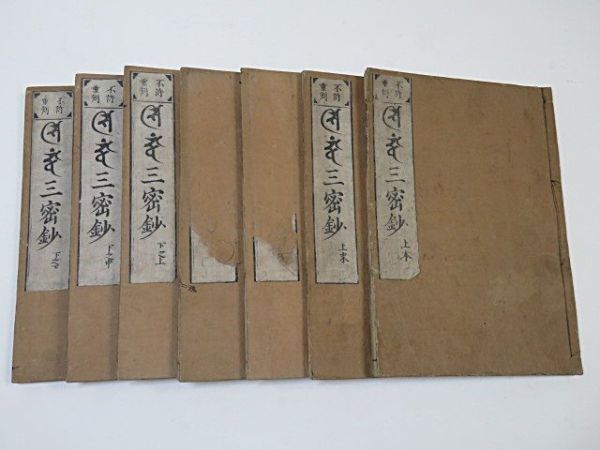 不許
重刻
𑖭𑖰𑖟𑖿𑖠𑖽三密鈔
上本
不許
重刻
𑖭𑖰𑖟𑖿𑖠𑖽三密鈔
上末
不許
重刻
𑖭𑖰𑖟𑖿𑖠𑖽三密鈔
下之上
不許
重刻
𑖭𑖰𑖟𑖿𑖠𑖽三密鈔
下之中
不許
重刻
𑖭𑖰𑖟𑖿𑖠𑖽三密鈔